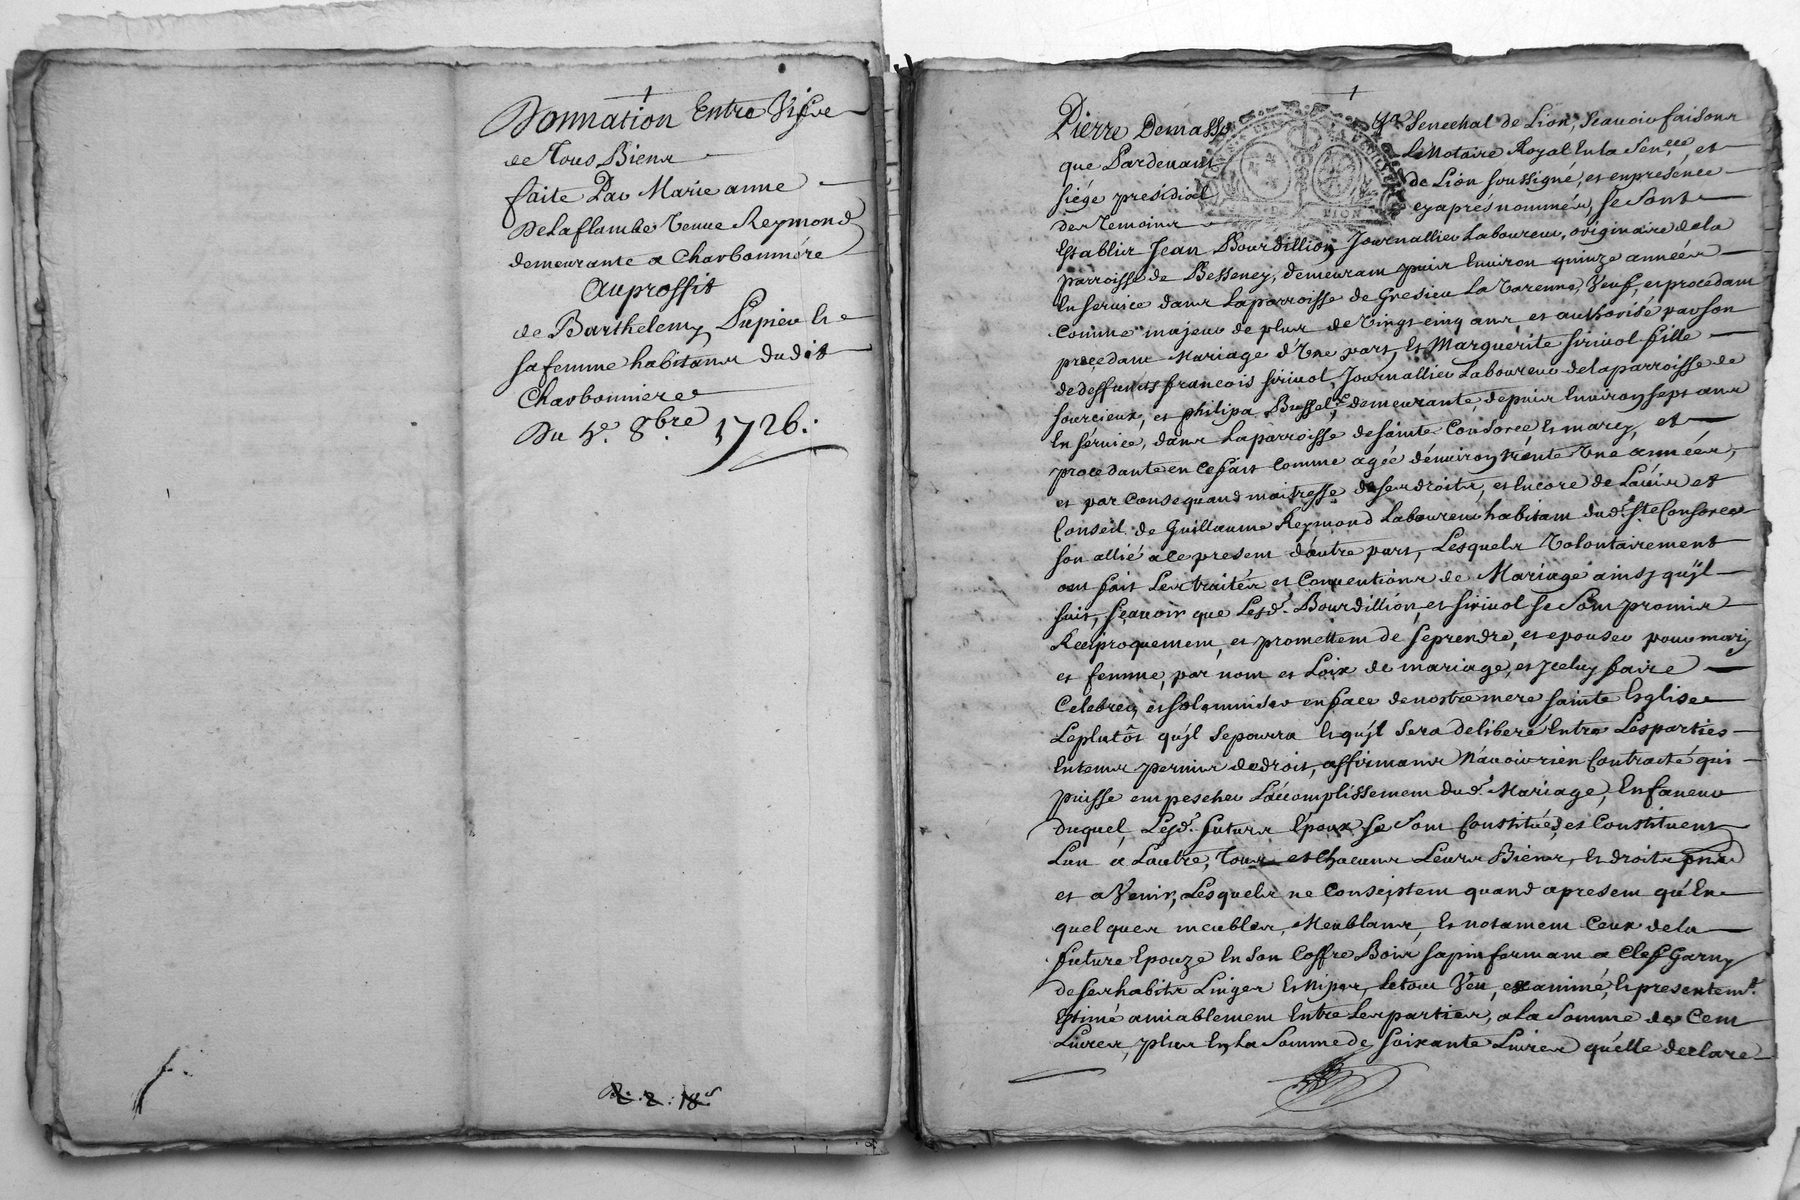 Donnation Entre Vifve
de Tous Biens
faite Par Marie anne
Delaflambe Veuve Reymond
demeurante a Charbonniére
Auproffit
de Barthelemy Pupier Et
sa femme habitans dudit
Charbonnieres
Du 4e. 8bre 1726.
Pierre Demasso Senechal de Lion, Scavoir faisons
que Pardevant Le Notaire Royal En la Sen.cée, et
siége présidial de Lion soussigné, et en presence
des Temoins cy aprés nommés, se sont
Establis Jean Bourdillion Journallier Laboureur, originaire de la
parroisse de Bessenay, demeurant puis Environ quinze années
En service dans La parroisse de Gresieu La Varenne, Veuf, et procedant
comme majeur de plus de Vingt cinq ans, et authorisé par son
precedant Mariage d'Une part, Et Marguerite sirivol fille
de deffunts francois sirivol, Journallier Laboureur de la parroisse de
sourcieux, et philipa demeurante, depuis Environ sept ans
En service, dans La parroisse de sainte Consorce Et marcy, et
procedante en ce fait comme agée d'environ trente Une années,
et par consequand maitresse de ses droits, et Encore de L'avis et
Conseil de Guillaume Reymond Laboureur habitant dud. Ste. Consorce
son allié a ce present d'autre part, Lesquels Volontairement
ont fait Les traités et Conventions de Mariage ainsy qu'jl
suit, scavoir que Lesd. Bourdillion, et sirivol se sont promis
Reciproquement, et promettent de se prendre, et epouser pour mary
et femme, par nom et Loix de mariage, et jceluy faire
Celebrer, et solemniser en face de nostre mere sainte Esglise
Leplutôt qu'jl se pourra Et qu'jl sera deliberé Entre Les parties
En tems permis de droit, affirmans N'avoir rien Contracté qui
puisse empescher L'accomplissement dud. Mariage, En faveur
duquel, Lesd. futurs Epoux se sont Constitués et Constituent
L'un a L'autre, tous et chacuns Leurs Biens, Et droits pnts
et a Venir, Lesquels ne Consistent quand a present qu'En
quelques meubles, Meublans, Et notament Ceux de la
future Epouze En son Coffre Bois sapin fermant a Clef Garny
de ses habits Linges Et Nipes, Le tout Veu, examiné, Et presentemt.
Estimé amiablement Entre Les parties, a La Somme de Cent
Livres, plus En La Somme de soixante Livres qu'elle declare